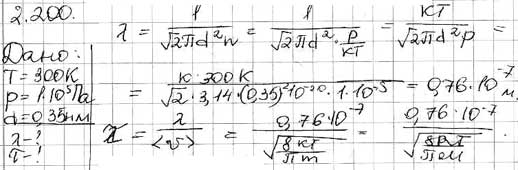 2.200.
λ = 1 / √2πd²n = 1 / √2πd²·p/кT = кT / √2πd²p =
Дано:
T=300K
p=1·10⁵Па
d=0,35нм
λ-?
τ-?
= к·300К / √2·3,14·(0,35)²·10⁻²⁰·1·10⁻⁵ = 0,76·10⁻⁷ м,
τ = λ / <v> = 0,76·10⁻⁷ / √8кT/πm = 0,76·10⁻⁷ / √8RT/πM